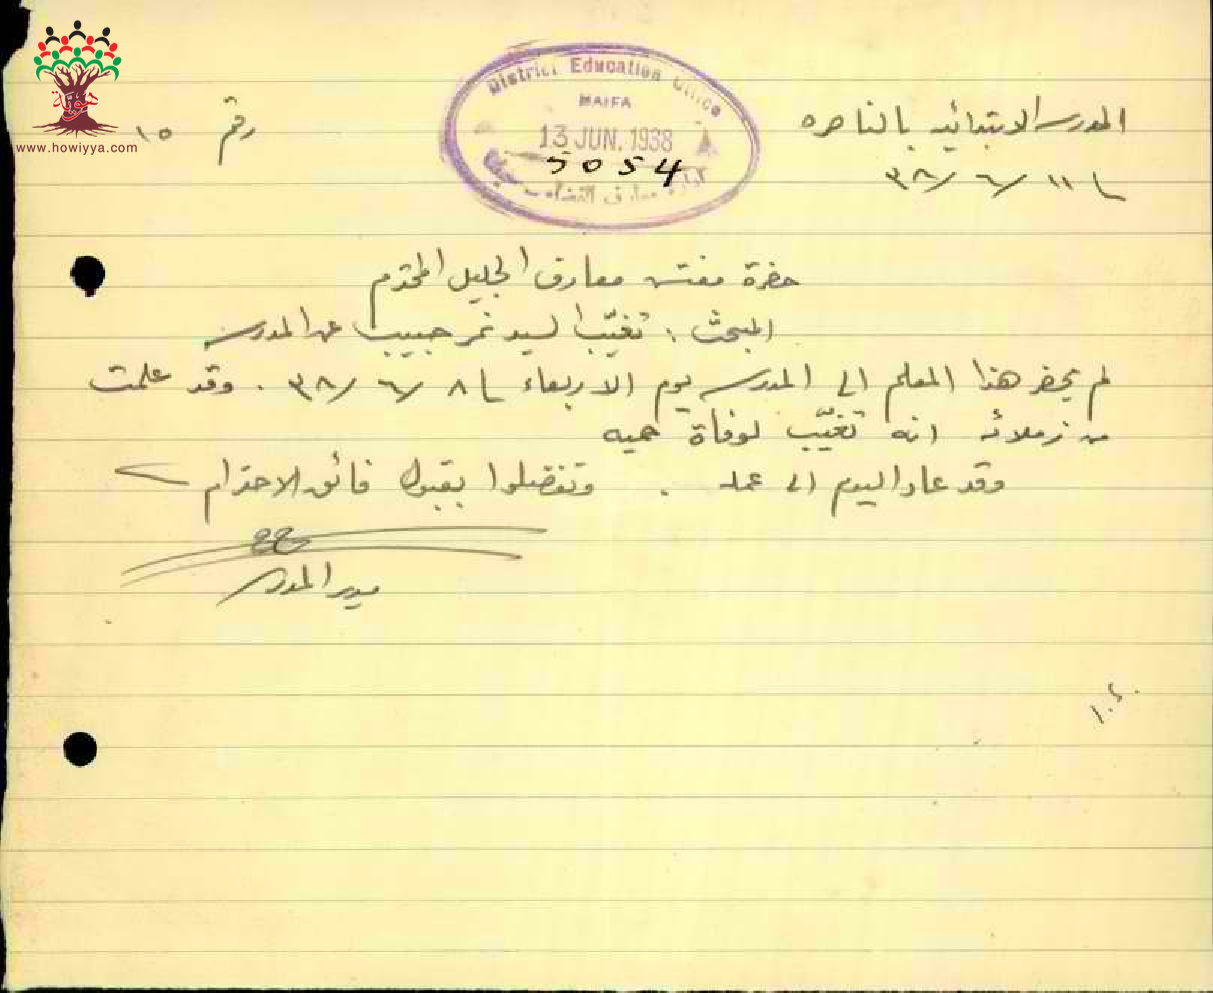 هوية
www.howiyya.com
District Education Office
HAIFA
13 JUN. 1938
5054
المدرسه الابتدائيه بالناصره
رقم ١٥
١١/٦/٣٨
حضرة مفتش معارف الجليل المحترم
المبحث : تغيّب السيد نمر حبيب عن المدرسه
لم يحضر هذا المعلم الى المدرسه يوم الاربعاء ٨/٦/٣٨ . وقد علمت
من زملائه انه تغيّب لوفاة حميه
وقد عاد اليوم الى عمله . وتفضلوا بقبول فائق الاحترام
مدير المدرسه